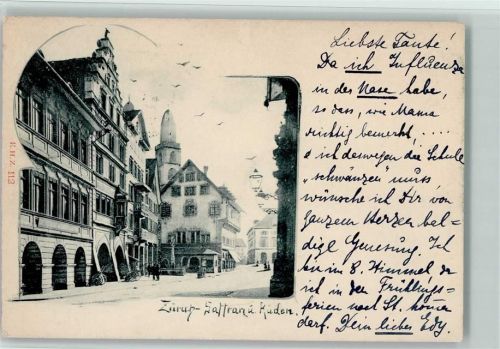 Liebste Tante!
Da ich Influenza
in der Nase habe,
so dass, wie Mama
richtig bemerkt, ....
ich deswegen die Schule
„schwänzen" muss,
wünsche ich Dir von
ganzem Herzen bal-
dige Genesung. Ich
bin im 8. Himmel da
ich in den Frühlings-
ferien nach St. komen
darf. Dein liebes Edy.
Zürich - Saffran u. Rüden.
E.H.Z. 112